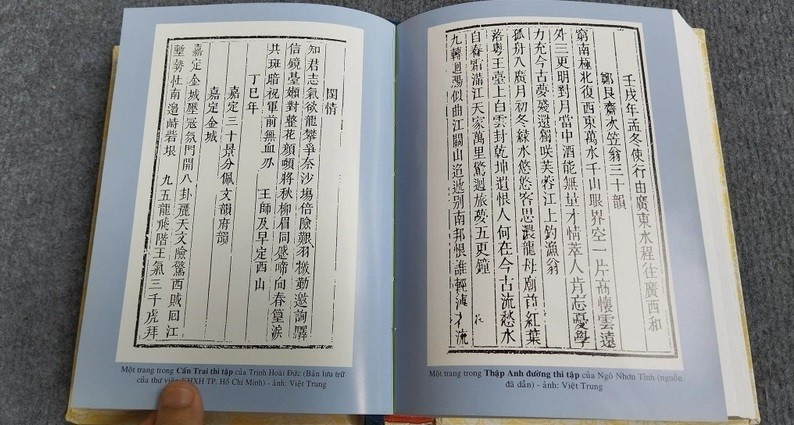 閨情
知君志氣欲龍攀爭奈沙場倍險艱羽檄勤邀詢驛
信鏡臺嬾對整花顔頓將秋柳眉同蹙啼向春篁淚
共班暗祝軍前無血刃 王師及早定西山
丁巳年
嘉定三十景分佩文韻府韻
嘉定金城
嘉定金城壓冦氛門開八卦飛天文險驚西賊囘江
塹勢壯南邉峙砦垠 九五龍飛階王氣三千虎拜
Một trang trong Cấn Trai thi tập của Trịnh Hoài Đức (Bản lưu trữ
của thư viện KHXH TP. Hồ Chí Minh) - ảnh: Việt Trung
壬戌年孟冬使行由廣東水程徃廣西和
鄭艮齋次笠翁三十韻
窮南極北復西東萬水千山眼界空一片高懷雲遠
外三更明對月當中酒能無量才情萃人肯忘憂學
力充今古夢殘還獨咲芙蓉江上釣漁翁
孤舟八廣月初冬綠水悠悠客思濃龍母廟前紅葉
落粤王臺上白雲封乾坤遺恨人何在今古流愁水
自舂霜滿江天家萬里驚迴旅夢五更鐘
九轉迴腸似曲江關山迢遞別南邦恨誰輕
Một trang trong Thập Anh đường thi tập của Ngô Nhơn Tĩnh (nguồn
đã dẫn) - ảnh: Việt Trung